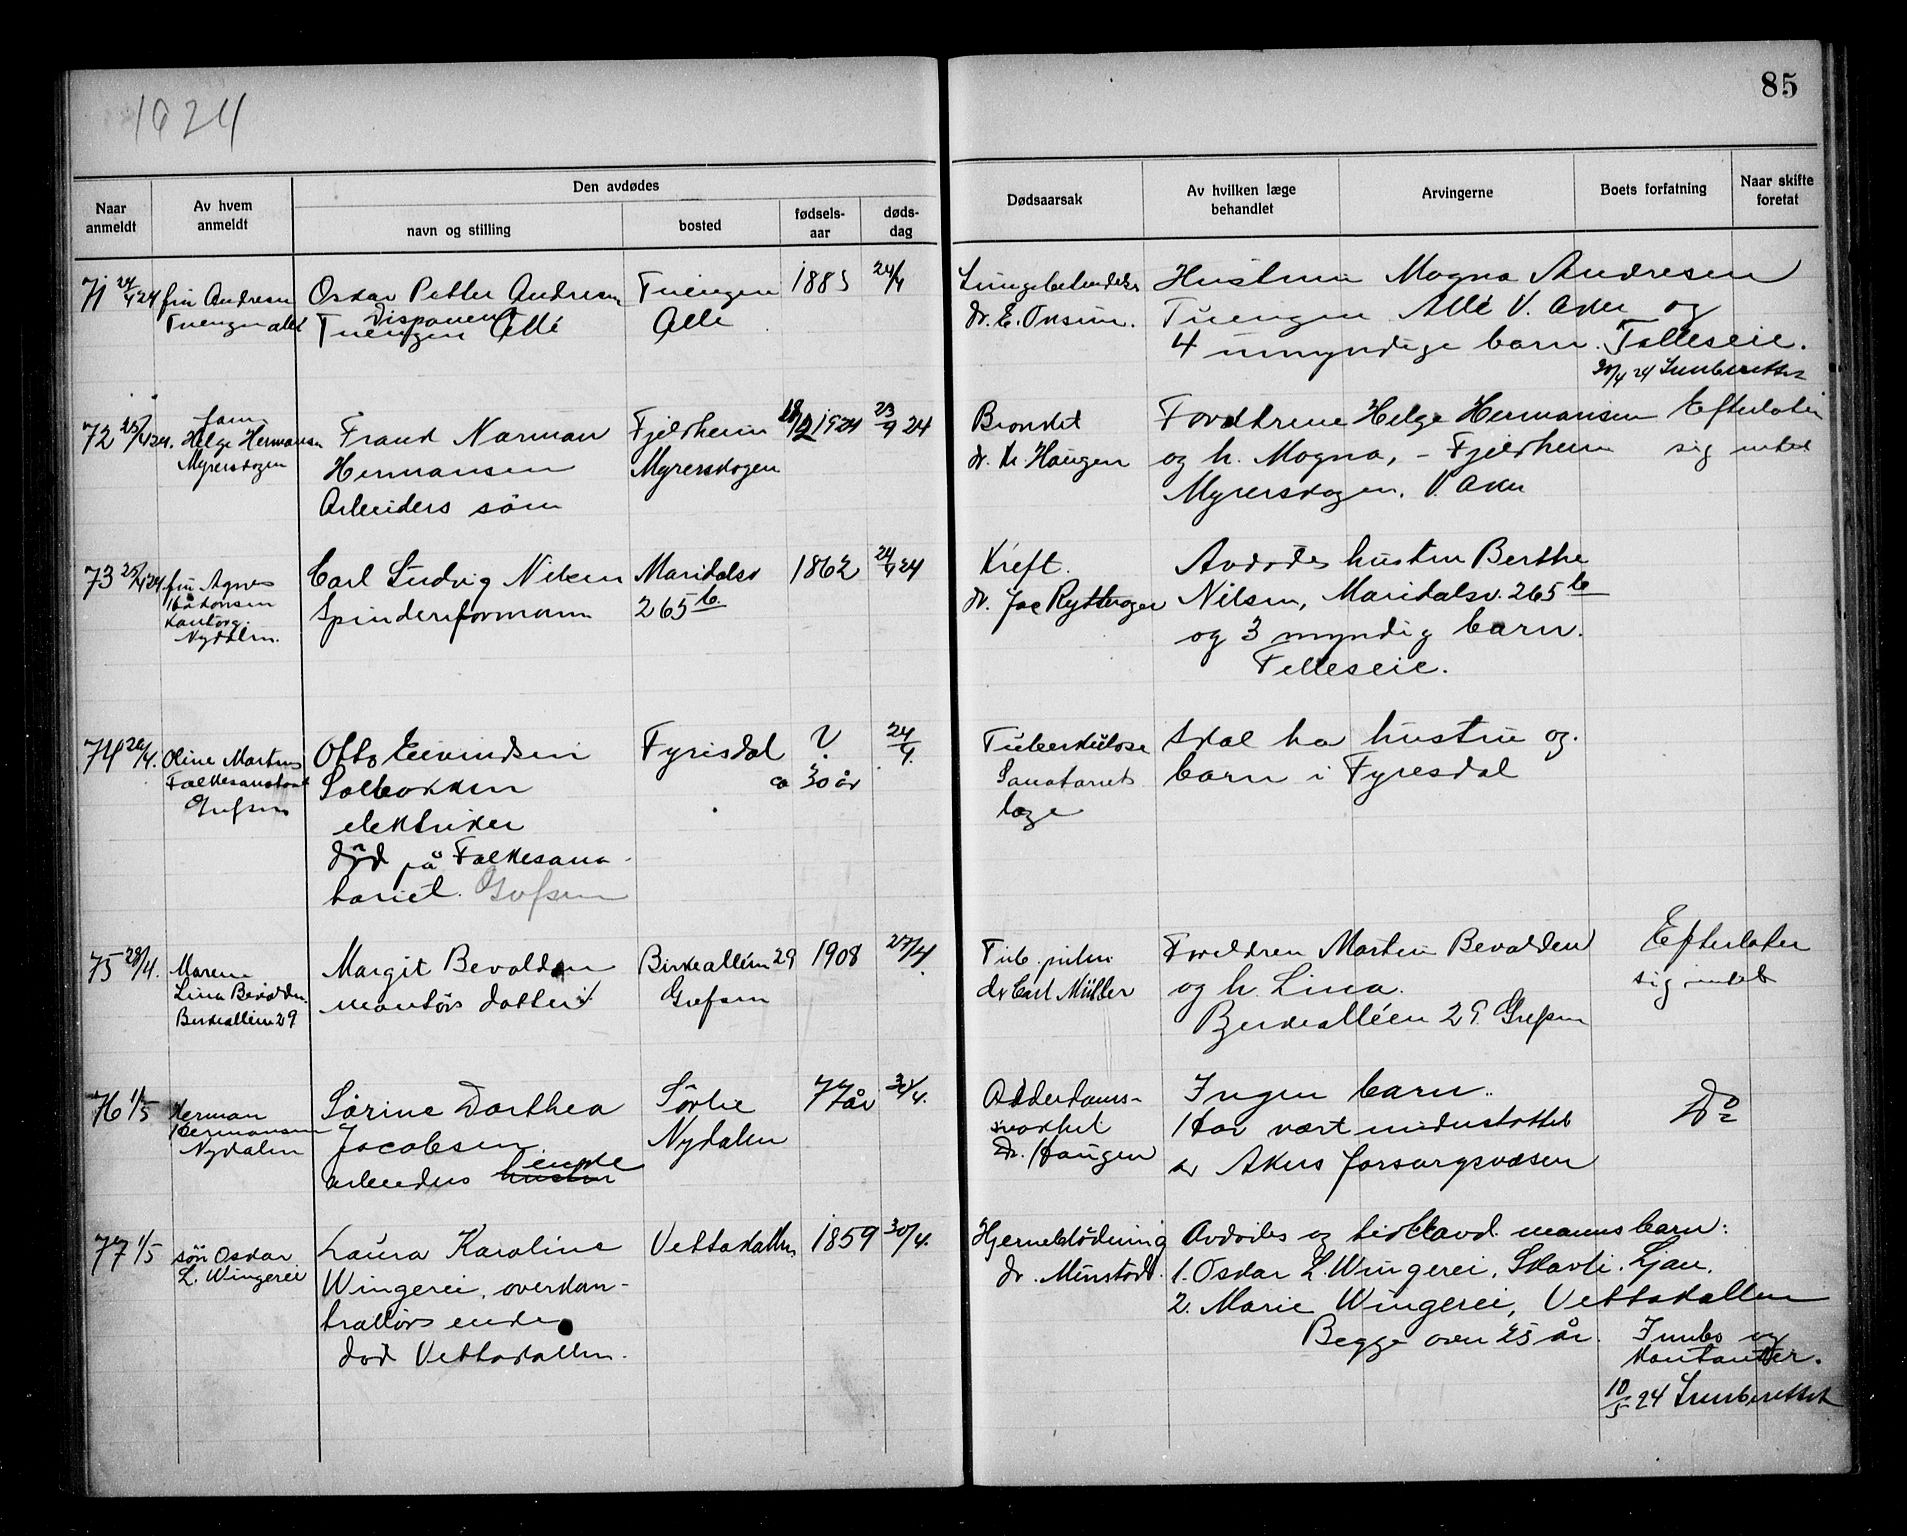 1924
85
Naar anmeldt
Av hvem anmeldt
Den avdødes
navn og stilling
bosted
fødsels-aar
døds-dag
Dødsaarsak
Av hvilken læge behandlet
Arvingerne
Boets forfatning
Naar skifte foretat
71 24/4 24 fru Andresen
Tuengen allé
Oskar Petter Andresen
Disponent
Tuengen Allé
Tuengen
Alle
1885
24/4
Lungebetendelse
dr. E.
Hustru Magna Andresen
Tuengen Allé V. Aker og
4 umyndige barn. Felleseie.
30/4 24 Innberettet
72 25/4 24. fam.
Helge Hermansen
Myrerskogen
Normann
Hermansen
Arbeiders sønn
Fjeldheim
Myrerskogen
1924
23/4 24
Bronkit
dr. Kr. Haugen
Foreldrene Helge Hermansen
og h. Magna, - Fjeldheim
Myrerskogen, V. Aker
Efterlater
sig intet
73 25/4 24 fru Agnes
Håkonsen
Nydalen.
Carl Ludvig Nilsen
Spinderiformann
Maridalsv
265 b.
1862
24/4 24
Kreft.
dr. Jac Rytterager
Avdødes hustru Berthe
Nilsen, Maridalsv. 265 b
og 3 myndig barn.
Felleseie.
74 26/4. Oline Martens
Folkesanatoriet
Grefsen
Otto Eivindsen
elektriker
død på Folkesana-
toriet. Grefsen
Fyrisdal
?
ca 30 år
24/4.
Tuberkulose
Sanatoriets
læge
Skal ha hustru og
barn i Fyresdal
75 28/4. Maren
Lina Bevolden
Birkealléen 29
Margit Bevolden
montørs datter
Birkealléen 29
Grefsen
1908
27/4.
Tub. pulm
dr Carl Müller
Foreldren Martin Bevolden
og h. Lina.
Birkealléen 29. Grefsen
Efterlater
sig intet
76 1/5 Herman
Hermansen
Nydalen
Sørine Dorthea
Jacobsen
enke
arbeiders hustru
Sørlie
Nydalen
77 år
30/4.
Alderdoms-
svakhet
Dr. Haugen
Ingen barn.
Har vært understøttet
av Akers forsorgsvæsen
Do
77 1/5 sønn Oskar
L. Wingerei
Laura Karoline
Wingerei, overkon-
trollørs enke
død Vettakollen.
Vettakollen
1859
30/4.
Hjerneblødning
dr.
Avdødes og tidl. avd. manns barn:
1. Oskar L. Wingerei, Ljan.
2. Marie Wingerei, Vettakollen
Begge over 25 år.
Innbo og
kontanter.
10/5 24 Innberettet